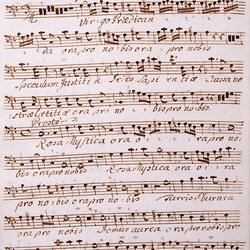 Virgo Prædican
da ora pro nobis ora pro nobis
speculum Justitiæ Sedes Sapientiæ Causa no
stræ Lætitiæ ora pro nobis.
Presto
Rosa Mystica ora o ra pro
nobis Rosa Mystica ora o ra
pro nobis ora pro nobis Turris Eburnea
ora pro nobis Domus aurea ora pro nobis pro